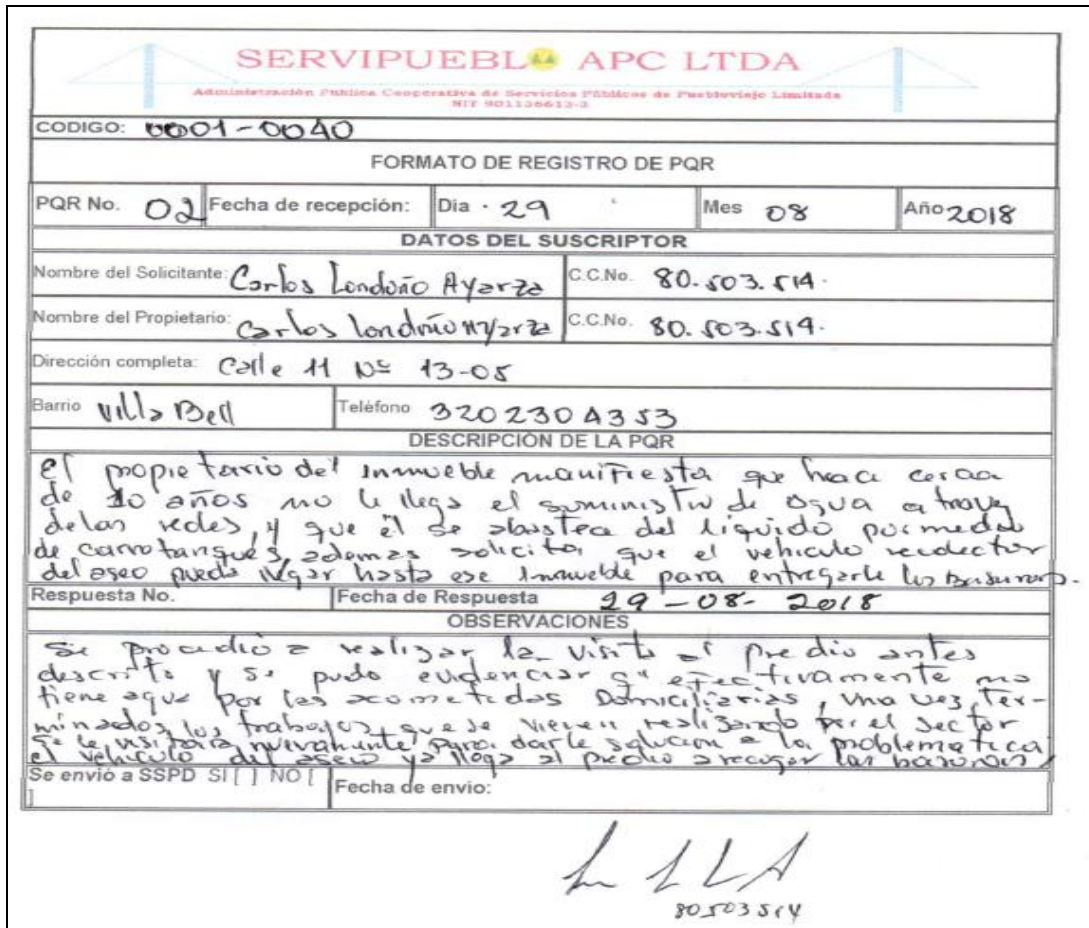 SERVIPUEBLO APC LTDA
Administración Pública Cooperativa de Servicios Públicos de Puebloviejo Limitada
NIT 901136613-3
CODIGO: 0001-0040
FORMATO DE REGISTRO DE PQR
PQR No. 02 Fecha de recepción: Dia · 29 Mes 08 Año 2018
DATOS DEL SUSCRIPTOR
Nombre del Solicitante: Carlos Londoño Ayarza C.C.No. 80.503.514.
Nombre del Propietario: Carlos Londoño Ayarza C.C.No. 80.503.514.
Dirección completa: Calle 11 Nº 13-05
Barrio Villa Bell Teléfono 3202304353
DESCRIPCIÓN DE LA PQR
El propietario del inmueble manifiesta que hace cerca
de 10 años no le llega el suministro de agua a traves
de las redes, y que él se abastece del liquido por medio
de carrotanques, ademas solicita que el vehiculo recolector
del aseo pueda llegar hasta ese inmueble para entregarle las basuras.
Respuesta No. Fecha de Respuesta 29-08-2018
OBSERVACIONES
Se procedio a realizar la visita al predio antes
descrito y se pudo evidenciar q' efectivamente no
tiene agua por las acometidas Domiciliarias, una vez ter-
minados los trabajos que se vienen realizando por el sector
se le visitara nuevamente para darle solucion a la problematica
el vehiculo del aseo ya llega al predio a recoger las basuras
Se envió a SSPD SI [ ] NO [
] Fecha de envio:
80503514